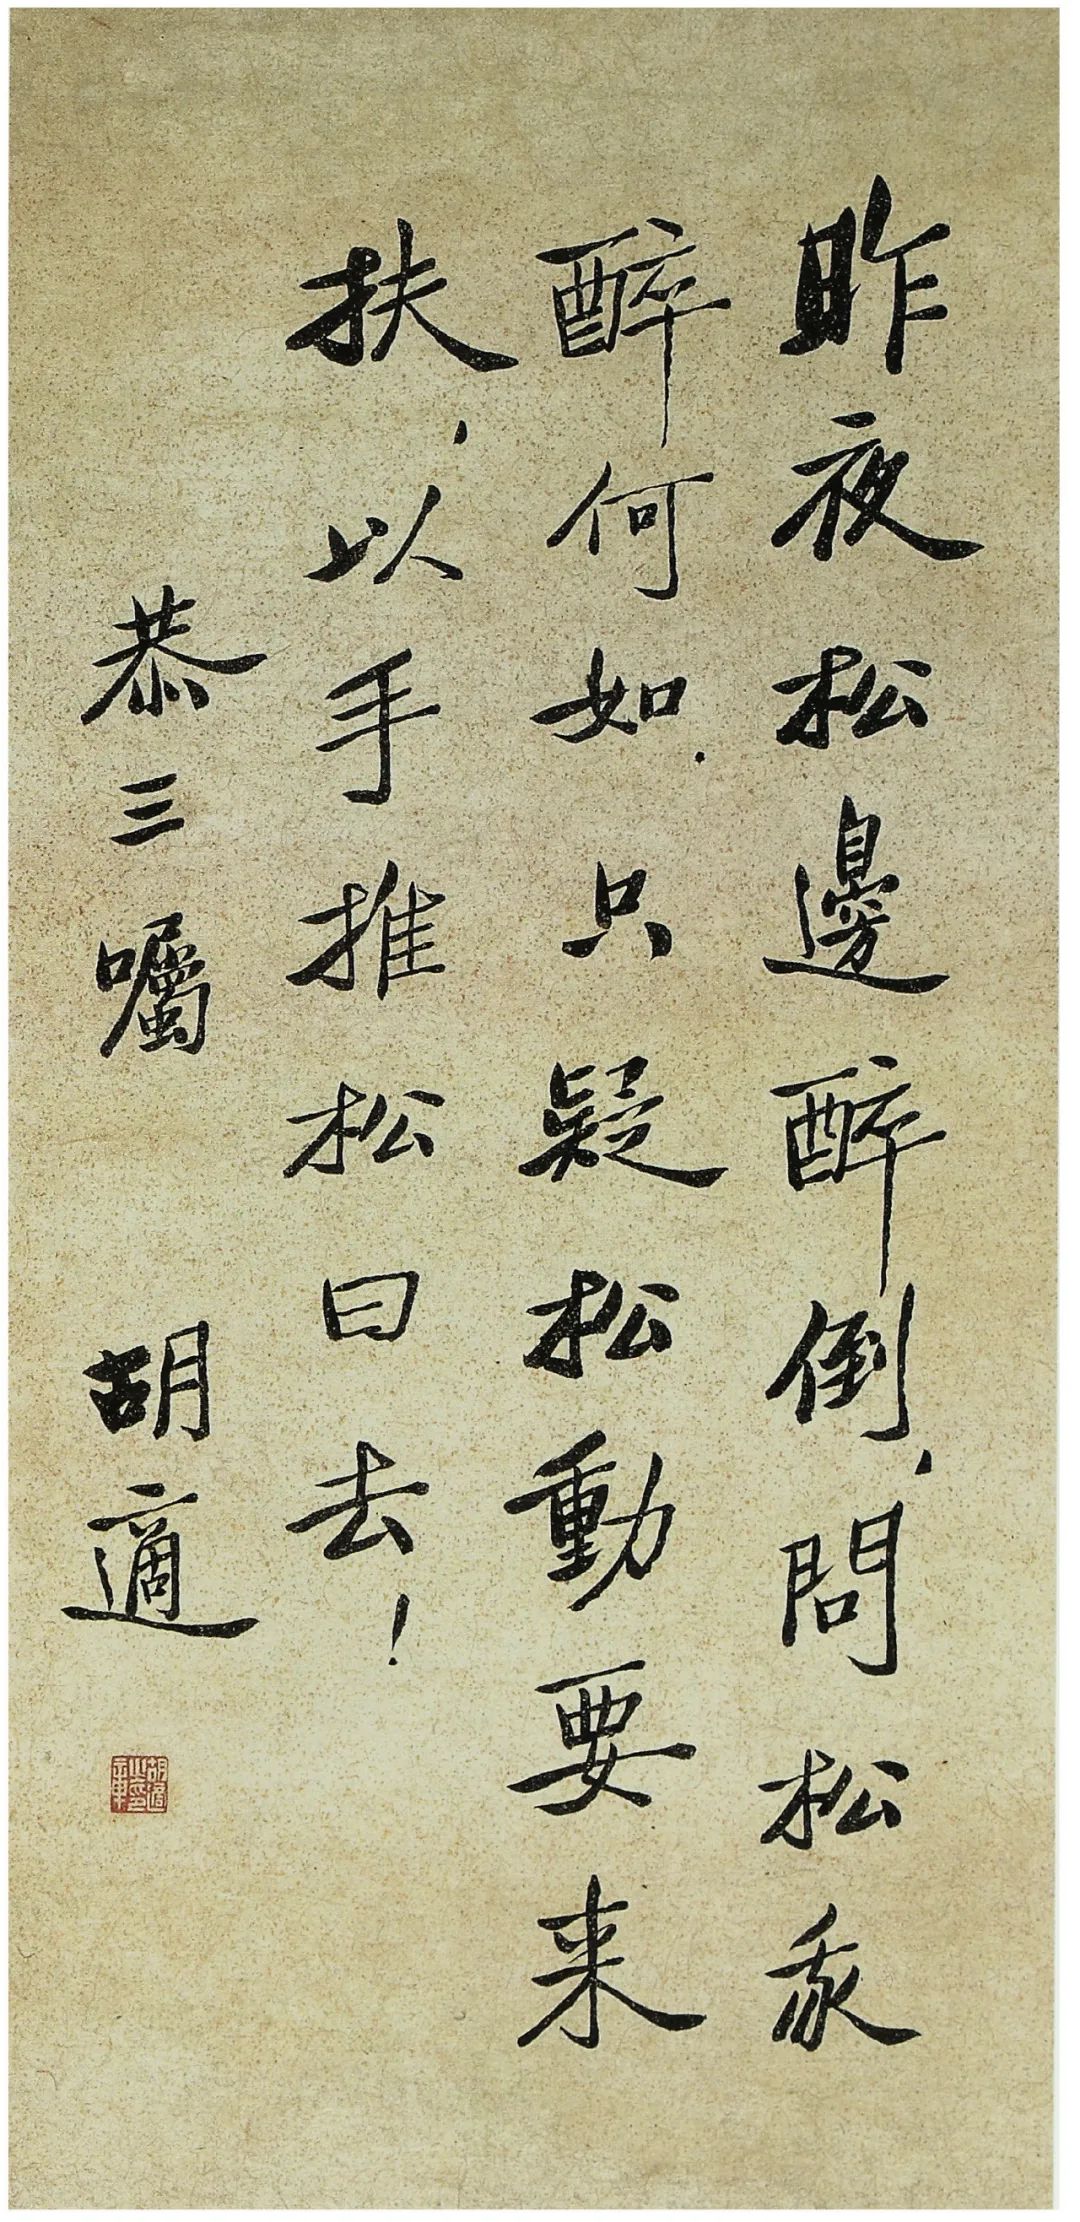 昨夜松邊醉倒，問松我
醉何如．只疑松動要来
扶，以手推松曰去！
恭三囑 胡適
胡適之鉨